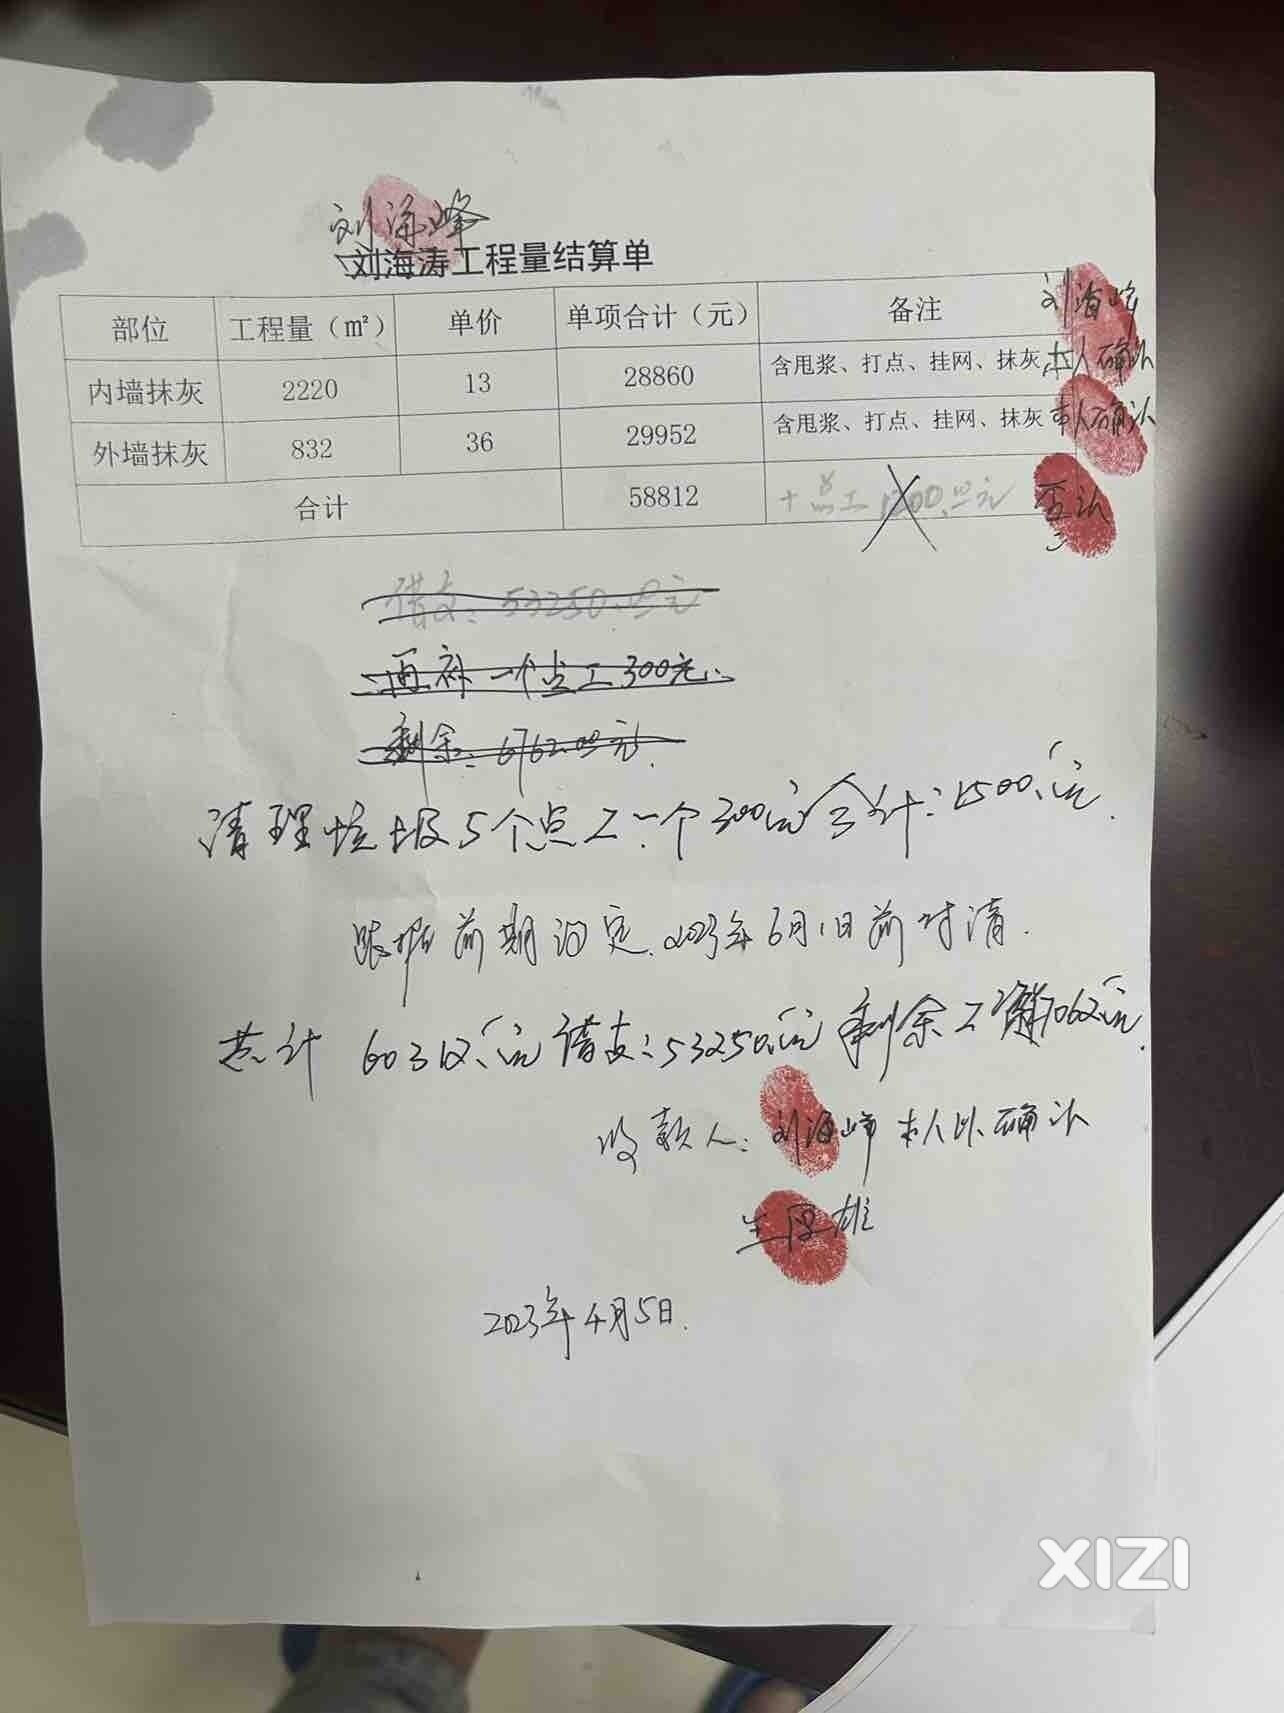 刘海峰
刘海涛工程量结算单
部位 工程量（㎡） 单价 单项合计（元） 备注 刘海峰
内墙抹灰 2220 13 28860 含甩浆、打点、挂网、抹灰 本人确认
外墙抹灰 832 36 29952 含甩浆、打点、挂网、抹灰 本人确认
合计 58812 +点工 1200.00元
借支：53250.00元
再补一个点工300元.
剩余：6762.00元.
清理垃圾5个点工.一个300元合计：1500.元.
跟据前期约定.2023年6月1日前付清.
共计 60312.元借支：53250.元剩余工资7062元.
收款人：刘海峰 本人以确认
2023年4月5日.
XIZI